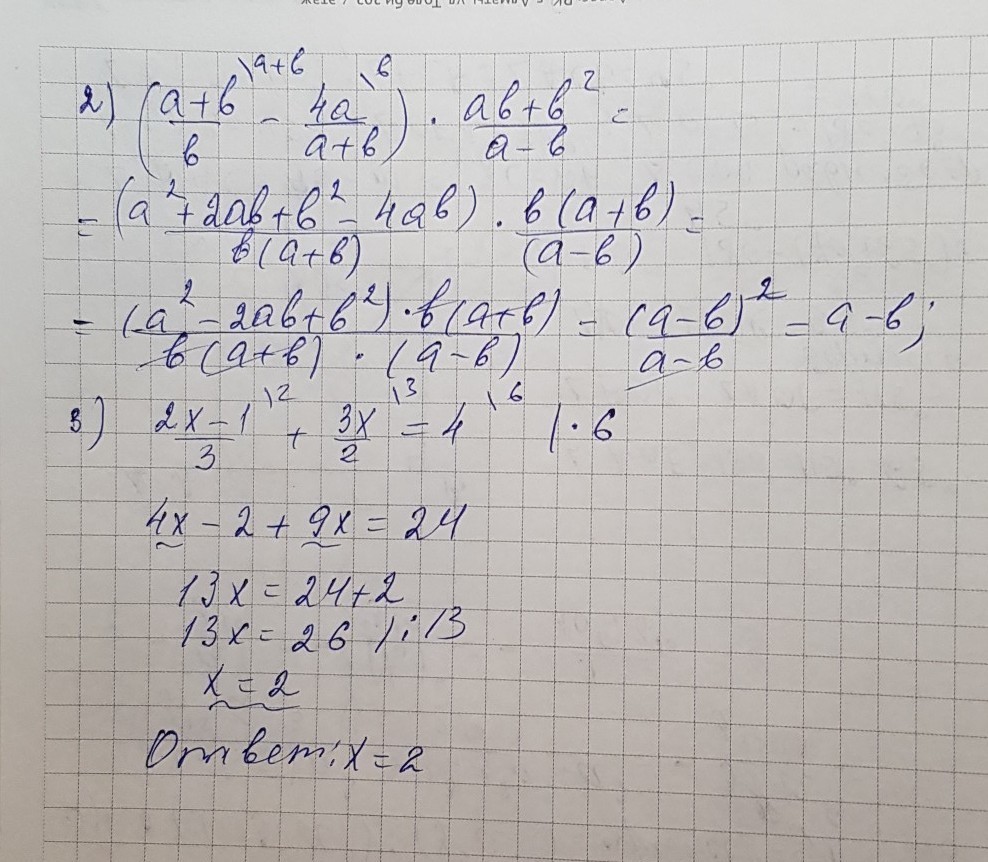 2) ((a+b)/b \a+b - 4a/(a+b) \b) · (ab+b²)/(a-b) =
= (a²+2ab+b²-4ab)/(b(a+b)) · b(a+b)/(a-b) =
= (a²-2ab+b²)·b(a+b)/(b(a+b)·(a-b)) = (a-b)²/(a-b) = a-b;
3) (2x-1)/3 \2 + 3x/2 \3 = 4 \6 |·6
4x-2+9x=24
13x=24+2
13x=26 |:13
x=2
Ответ: x=2